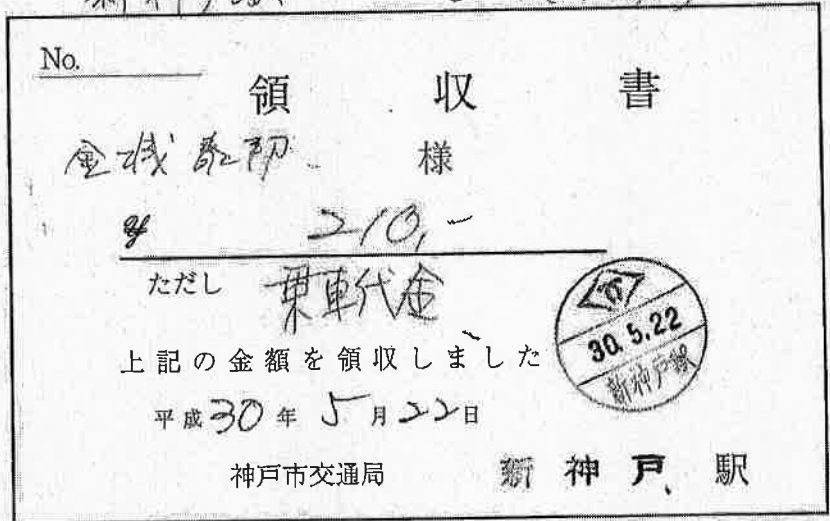 No.
領収書
金城 様
¥ 210,-
ただし 乗車代金
上記の金額を領収しました
30.5.22
新神戸駅
平成30年5月22日
神戸市交通局 新神戸駅